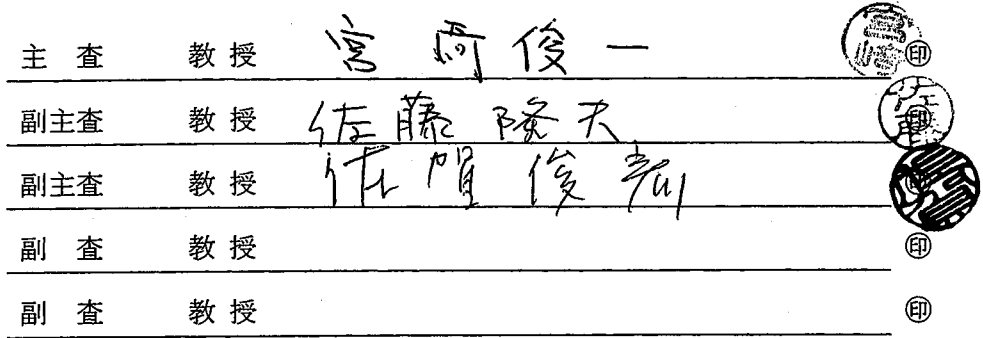 主 査 教 授 宮 崎 俊 一 ㊞
副主査 教 授 佐 藤 隆 夫 ㊞
副主査 教 授 佐 賀 俊 ㊞
副 査 教 授 ㊞
副 査 教 授 ㊞